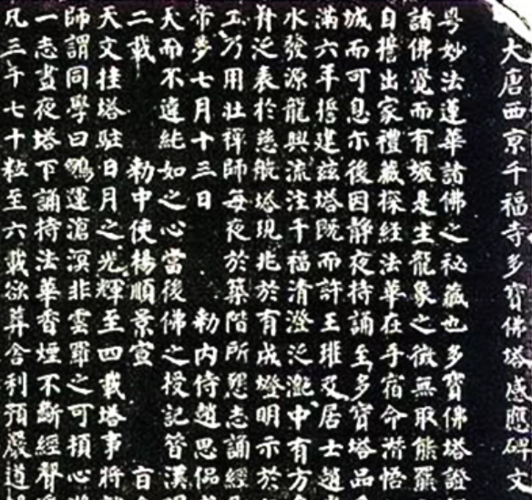 大唐西京千福寺多寶佛塔感應碑文
粤妙法蓮華諸佛之秘藏也多寶佛塔證
諸佛覺而有娠是生龍象之徵無取熊羆
自誓出家禮藏探經法華在手宿命潛悟
城而可息尒後因靜夜持誦至多寶塔品
滿六年誓建茲塔既而許王瓘及居士趙
水發源龍興流注千福清澄泛灔中有方
舟泛表於慈航塔現兆於有成燈明示於
工乃用壯禪師每夜於築階所懇志誦經
帝夢七月十三日 勑内侍趙思偘
大而不違純如之心當後佛之授記昔漢
二載 勑中使楊順景宣 旨
天文挂塔駐日月之光輝至四載塔事將
師謂同學曰鵬運滄溟非雲羅之可頓心
一志晝夜塔下誦持法華香煙不斷經聲
凡三千七十粒至六載欲葬舍利預嚴道